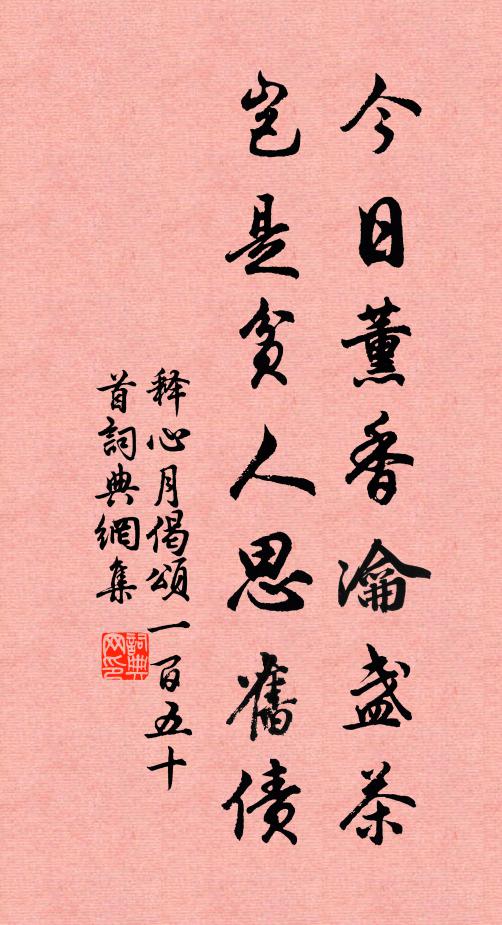 今日薰香瀹盏茶
岂是贫人思舊债
释心月偈頌一百五十
首詞典網集
詞典网印